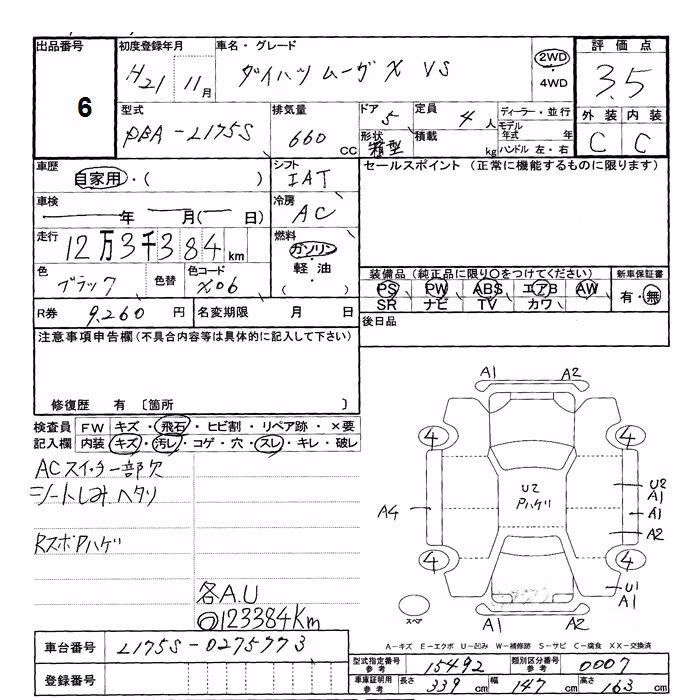 出品番号 初度登録年月 車名・グレード 評価点
6
H21 11月 ダイハツ ムーヴ X VS 2WD ・ 4WD 3.5
型式 排気量 ドア 5 定員 4人 ディーラー・並行 外装 内装
DBA - L175S 660CC 形状 箱型 積載 kg モデル年式 年 ハンドル 左・右 C C
車歴 シフト セールスポイント (正常に機能するものに限ります)
自家用・( ) IAT
車検 年 月( 日) 冷房 AC
走行 12万3千384km 燃料 ガソリン・軽油 ( )
色 ブラック 色替 色コード X06
装備品 (純正品に限り○をつけてください) 新車保証書
PS PW ABS エアB AW 有・無
SR ナビ TV カワ
R券 9,260円 名変期限 月 日 後日品
注意事項申告欄 (不具合内容等は具体的に記入して下さい)
修復歴 有 〔箇所 〕
検査員 FW キズ・飛石・ヒビ割・リペア跡・×要
記入欄 内装 キズ・汚レ・コゲ・穴・スレ・キレ・破レ
ACスイッチ一部欠
シートしみ ヘタリ
RスポPハゲ
各A.U
◎123384Km
A1 A2
4 4
U2 Pハゲ
U2 A1
A4 A1
A2
4 4
U1 A1
スペア
A1 A2
A-キズ E-エクボ U-凹み W-補修跡 S-サビ C-腐食 XX-交換済
車台番号 L175S-0275773
登録番号
型式指定番号 参考 15492 類別区分番号 参考 0007
車庫証明用 参考 長さ 339cm 幅 147cm 高さ 163cm